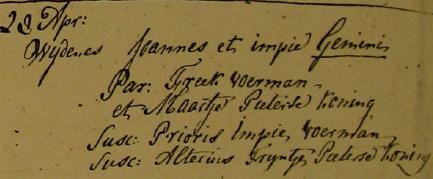 28 Apr:
Wydenes Joannes et impie Gemini
Par: Freek Voerman
et Maartje Pieterse Koning
Susc: Prioris Impie Voerman
Susc: Alterius Tryntje Pieterse Koning